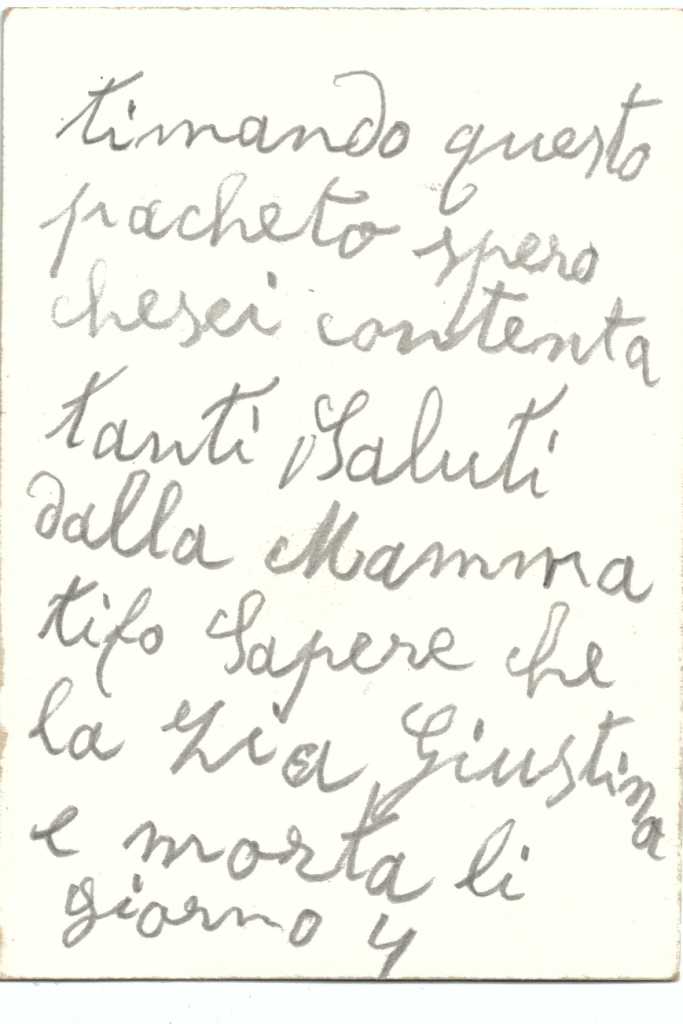 timando questo
pacheto spero
chesei contenta
tanti Saluti
dalla Mamma
tifo Sapere che
la Zia Giustina
e morta li
giorno 4